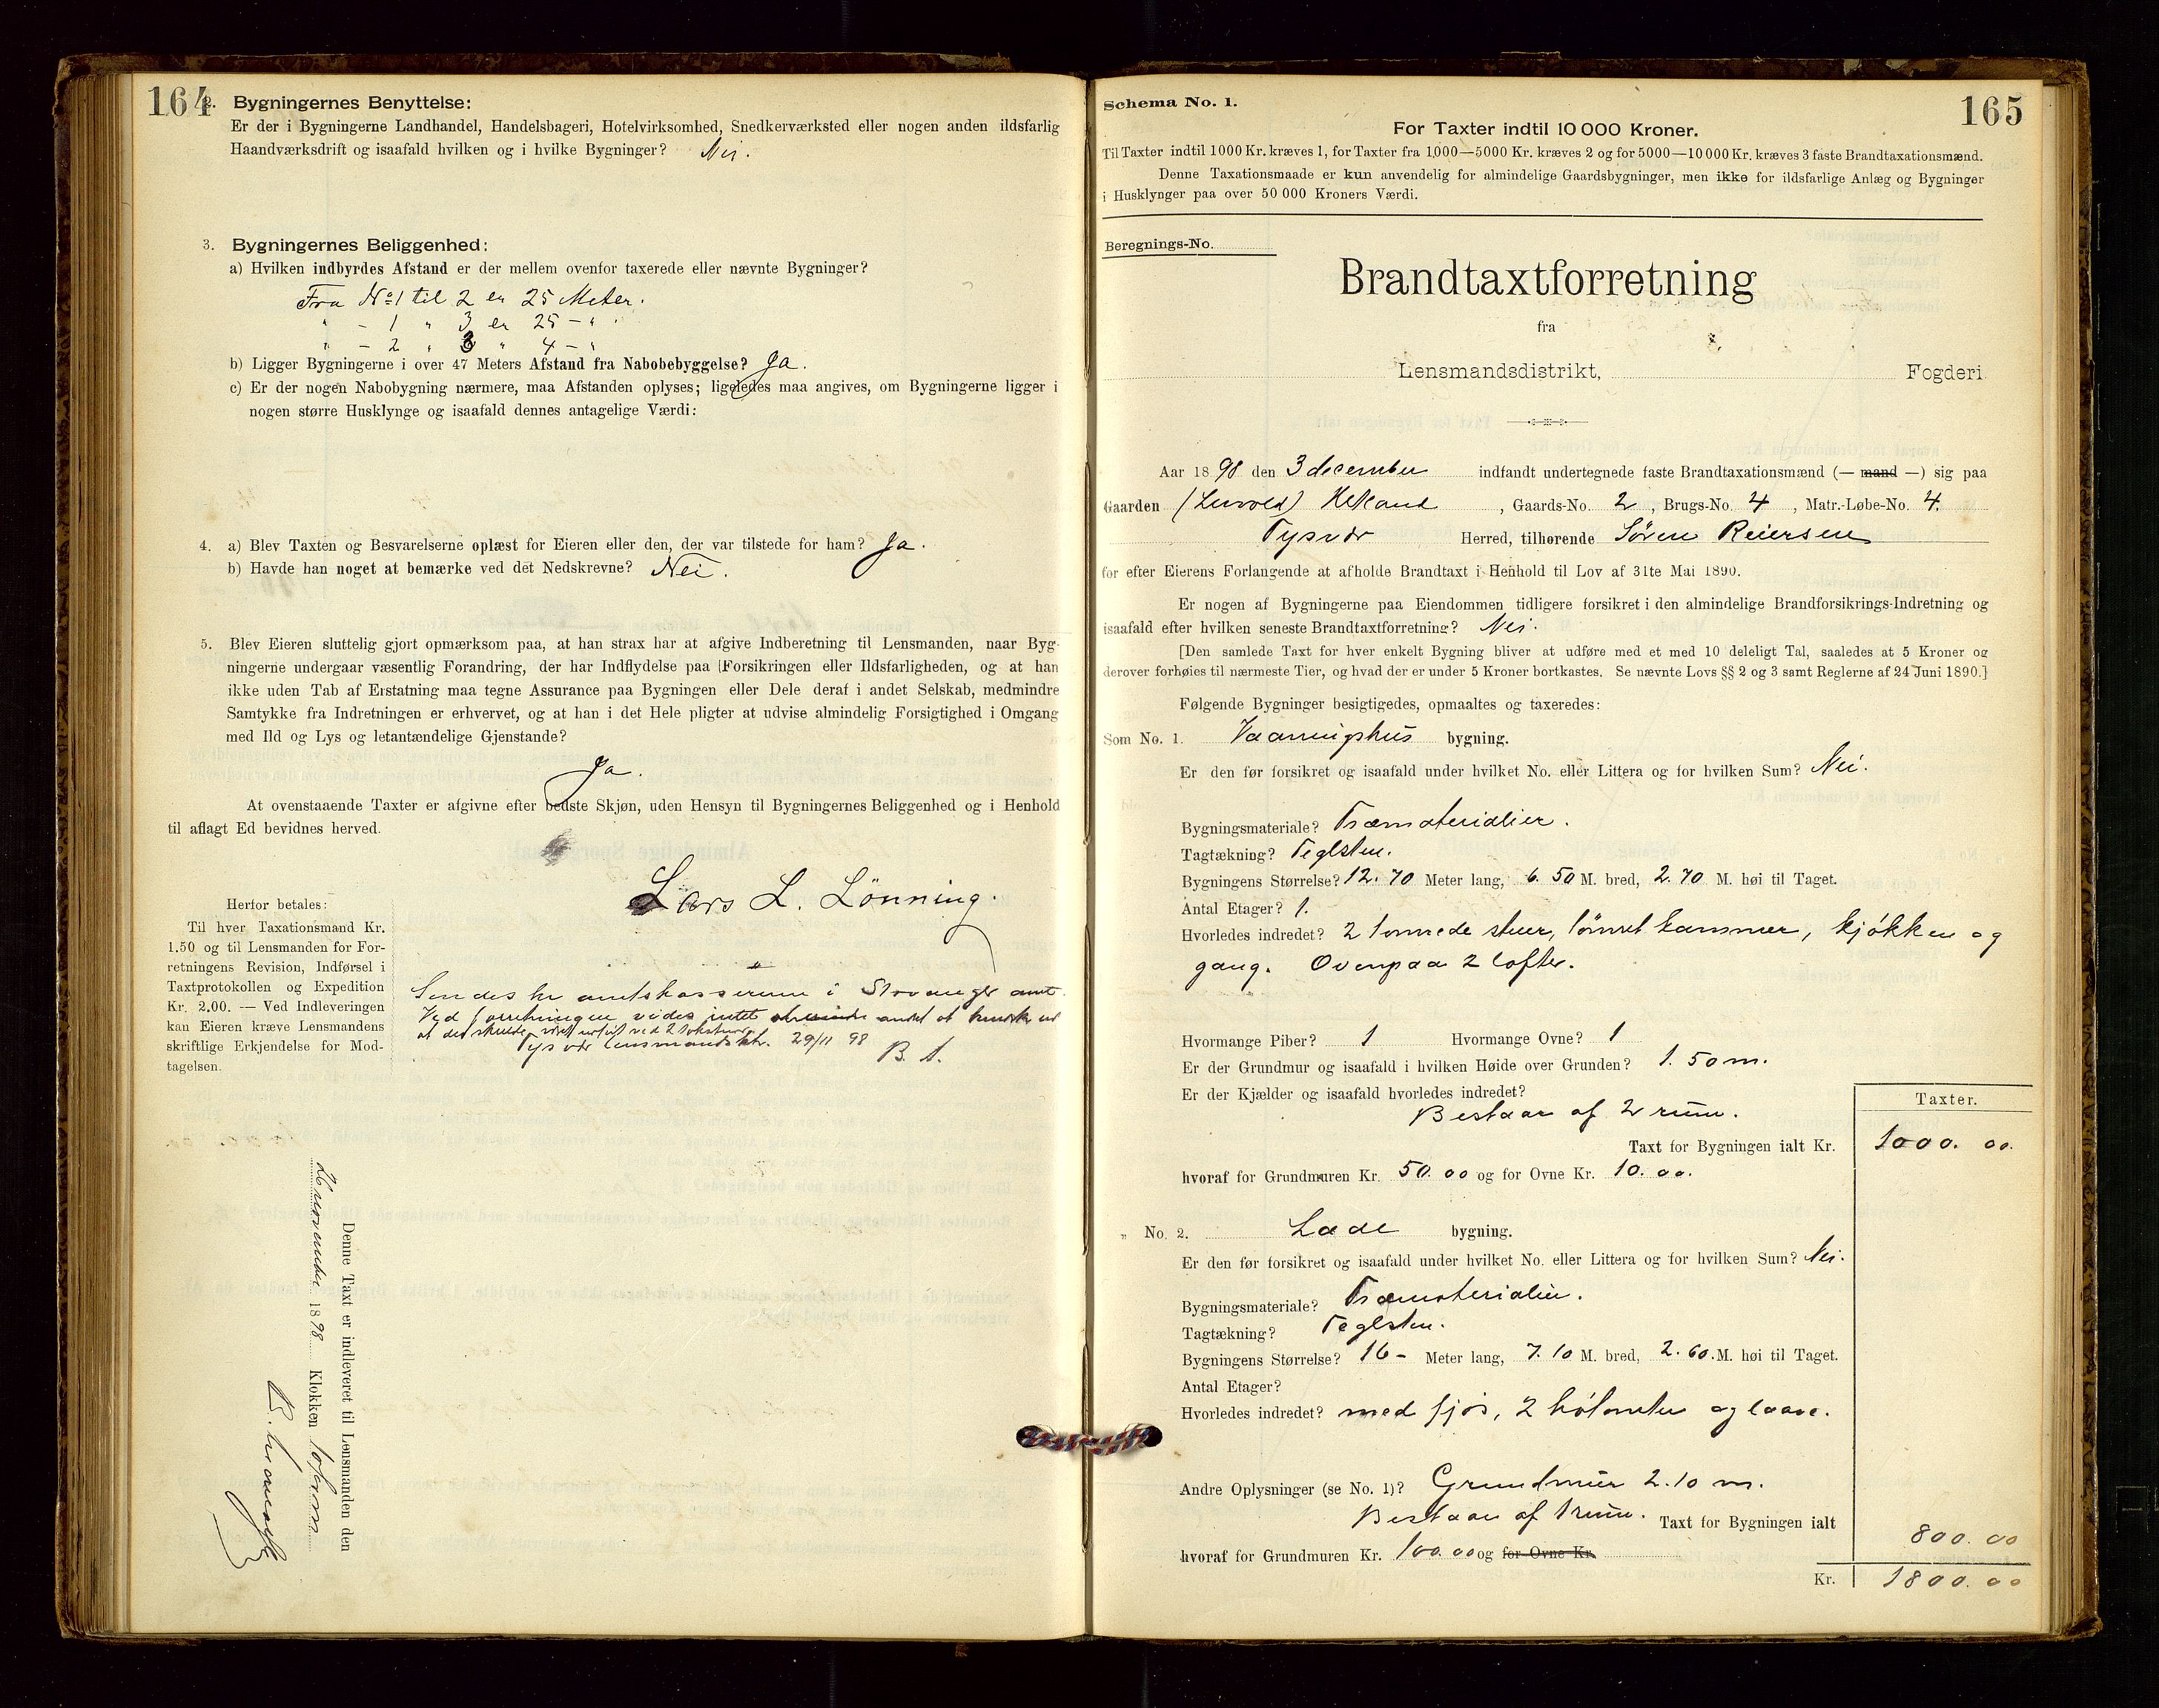 164
2. Bygningernes Benyttelse:
Er der i Bygningerne Landhandel, Handelsbageri, Hotelvirksomhed, Snedkerværksted eller nogen anden ildsfarlig
Haandværksdrift og isaafald hvilken og i hvilke Bygninger? Nei.
3. Bygningernes Beliggenhed:
a) Hvilken indbyrdes Afstand er der mellem ovenfor taxerede eller nævnte Bygninger?
Fra No 1 til 2 er 25 Meter.
" - 1 " 3 er 25 - " .
" - 2 " 3 " 4 - "
b) Ligger Bygningerne i over 47 Meters Afstand fra Nabobebyggelse? Ja.
c) Er der nogen Nabobygning nærmere, maa Afstanden oplyses; ligeledes maa angives, om Bygningerne ligger i
nogen større Husklynge og isaafald dennes antagelige Værdi:
4. a) Blev Taxten og Besvarelserne oplæst for Eieren eller den, der var tilstede for ham? Ja.
b) Havde han noget at bemærke ved det Nedskrevne? Nei.
5. Blev Eieren sluttelig gjort opmærksom paa, at han strax har at afgive Indberetning til Lensmanden, naar Byg-
ningerne undergaar væsentlig Forandring, der har Indflydelse paa Forsikringen eller Ildsfarligheden, og at han
ikke uden Tab af Erstatning maa tegne Assurance paa Bygningen eller Dele deraf i andet Selskab, medmindre
Samtykke fra Indretningen er erhvervet, og at han i det Hele pligter at udvise almindelig Forsigtighed i Omgang
med Ild og Lys og letantændelige Gjenstande?
Ja.
At ovenstaaende Taxter er afgivne efter bedste Skjøn, uden Hensyn til Bygningernes Beliggenhed og i Henhold
til aflagt Ed bevidnes herved.
Lars L. Lönning.
Herfor betales:
Til hver Taxationsmand Kr.
1.50 og til Lensmanden for For-
retningens Revision, Indførsel i
Taxtprotokollen og Expedition
Kr. 2.00. — Ved Indleveringen
kan Eieren kræve Lensmandens
skriftlige Erkjendelse for Mod-
tagelsen.
Sendes hr amtskassereren i Stavanger amt.
Ved forretningen vides intet andet at
at det skulde været ved 2
Tysvær lensmandsktr. 29/11 98 B. A.
Denne Taxt er indleveret til Lensmanden den
november 1898 Klokken
165
Schema No. 1.
For Taxter indtil 10 000 Kroner.
Til Taxter indtil 1000 Kr. kræves 1, for Taxter fra 1000—5000 Kr. kræves 2 og for 5000—10000 Kr. kræves 3 faste Brandtaxationsmænd.
Denne Taxationsmaade er kun anvendelig for almindelige Gaardsbygninger, men ikke for ildsfarlige Anlæg og Bygninger
i Husklynger paa over 50 000 Kroners Værdi.
Beregnings-No.
Brandtaxtforretning
fra
Lensmandsdistrikt, Fogderi
Aar 1898 den 3 december indfandt undertegnede faste Brandtaxationsmænd (— mand —) sig paa
Gaarden Helland, Gaards-No. 2, Brugs-No. 4, Matr.-Løbe-No. 4.
Tysvær Herred, tilhørende Søren Reiersen
for efter Eierens Forlangende at afholde Brandtaxt i Henhold til Lov af 31te Mai 1890.
Er nogen af Bygningerne paa Eiendommen tidligere forsikret i den almindelige Brandforsikrings-Indretning og
isaafald efter hvilken seneste Brandtaxtforretning? Nei.
[Den samlede Taxt for hver enkelt Bygning bliver at udføre med et med 10 deleligt Tal, saaledes at 5 Kroner og
derover forhøies til nærmeste Tier, og hvad der er under 5 Kroner bortkastes. Se nævnte Lovs §§ 2 og 3 samt Reglerne af 24 Juni 1890.]
Følgende Bygninger besigtigedes, opmaaltes og taxeredes:
Som No. 1. Vaaningshus bygning.
Er den før forsikret og isaafald under hvilket No. eller Littera og for hvilken Sum? Nei.
Bygningsmateriale? Træmaterialier.
Tagtækning? Teglsten.
Bygningens Størrelse? 12.70 Meter lang, 6.50 M. bred, 2.70 M. høi til Taget.
Antal Etager? 1.
Hvorledes indredet? 2 tømrede stuer, tömret kammer, kjökken og
gang. Ovenpaa 2 lofter.
Hvormange Piber? 1 Hvormange Ovne? 1
Er der Grundmur og isaafald i hvilken Høide over Grunden? 1.50 m.
Er der Kjælder og isaafald hvorledes indredet?
Bestaar af 2 rum.
Taxter.
Taxt for Bygningen ialt Kr. 1000.00.
hvoraf for Grundmuren Kr. 50.00 og for Ovne Kr. 10.00.
" No. 2. Lade bygning.
Er den før forsikret og isaafald under hvilket No. eller Littera og for hvilken Sum? Nei.
Bygningsmateriale? Træmaterialier.
Tagtækning? Teglsten.
Bygningens Størrelse? 16 - Meter lang, 7.10 M. bred, 2.60. M. høi til Taget.
Antal Etager?
Hvorledes indredet? med fjös, 2 og laave.
Andre Oplysninger (se No. 1)? Grundmur 2.10 m.
Bestaar af 1 rum. Taxt for Bygningen ialt 800.00
hvoraf for Grundmuren Kr. 100.00 og for Ovne Kr.
Kr. 1800.00